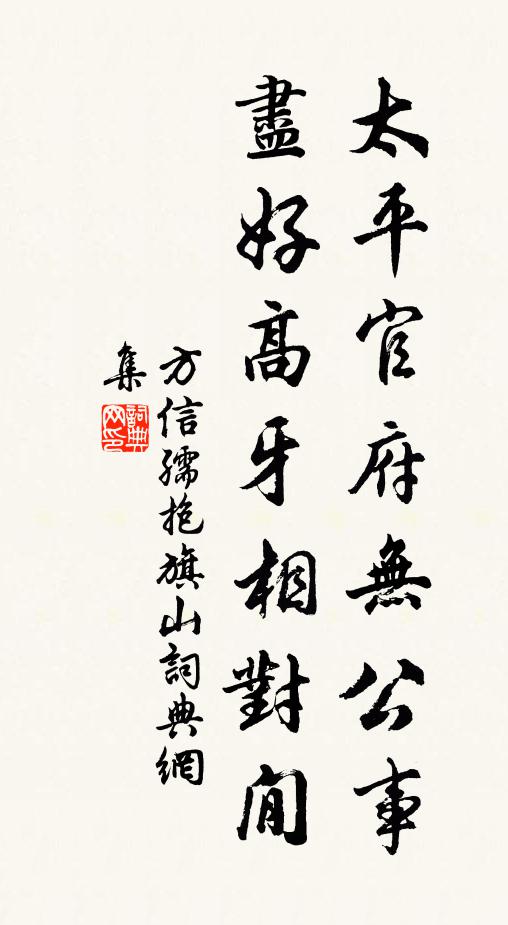 太平官府無公事
盡好高牙相對閒
方信孺抱旗山詞典網
集
詞典網印